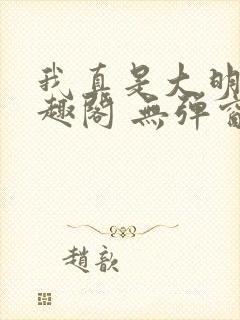 我真是大明
趣閣 無彈窗
趙歆